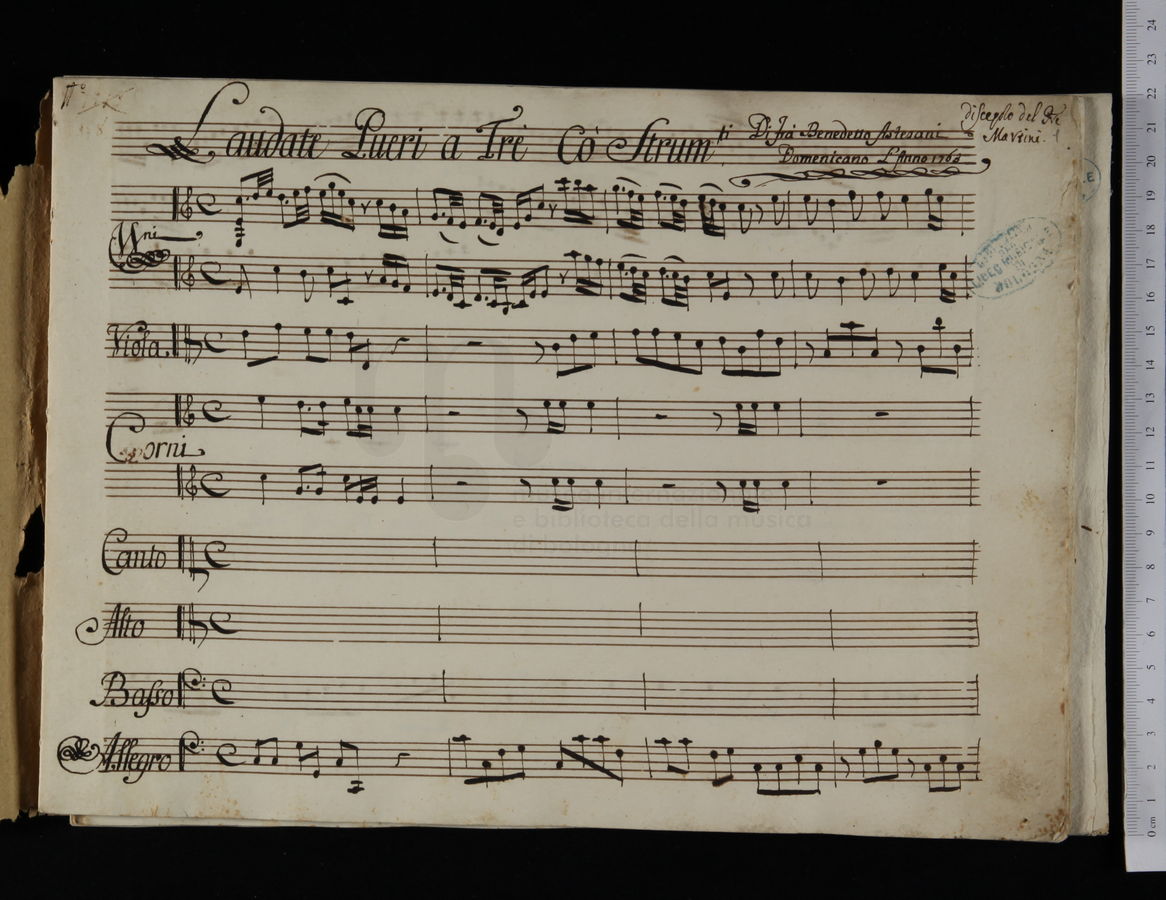 Laudate Pueri a Trè Cò Strum.ti
Di frà Benedetto Astesani
Domenicano L'Anno
discepolo del
Martini.
Viola.
Corni
e biblioteca della musica
Canto
Alto
Basso
Allegro
24
23
22
21
20
19
18
17
16
15
14
13
12
11
10
9
8
7
6
5
4
3
2
1
0 cm